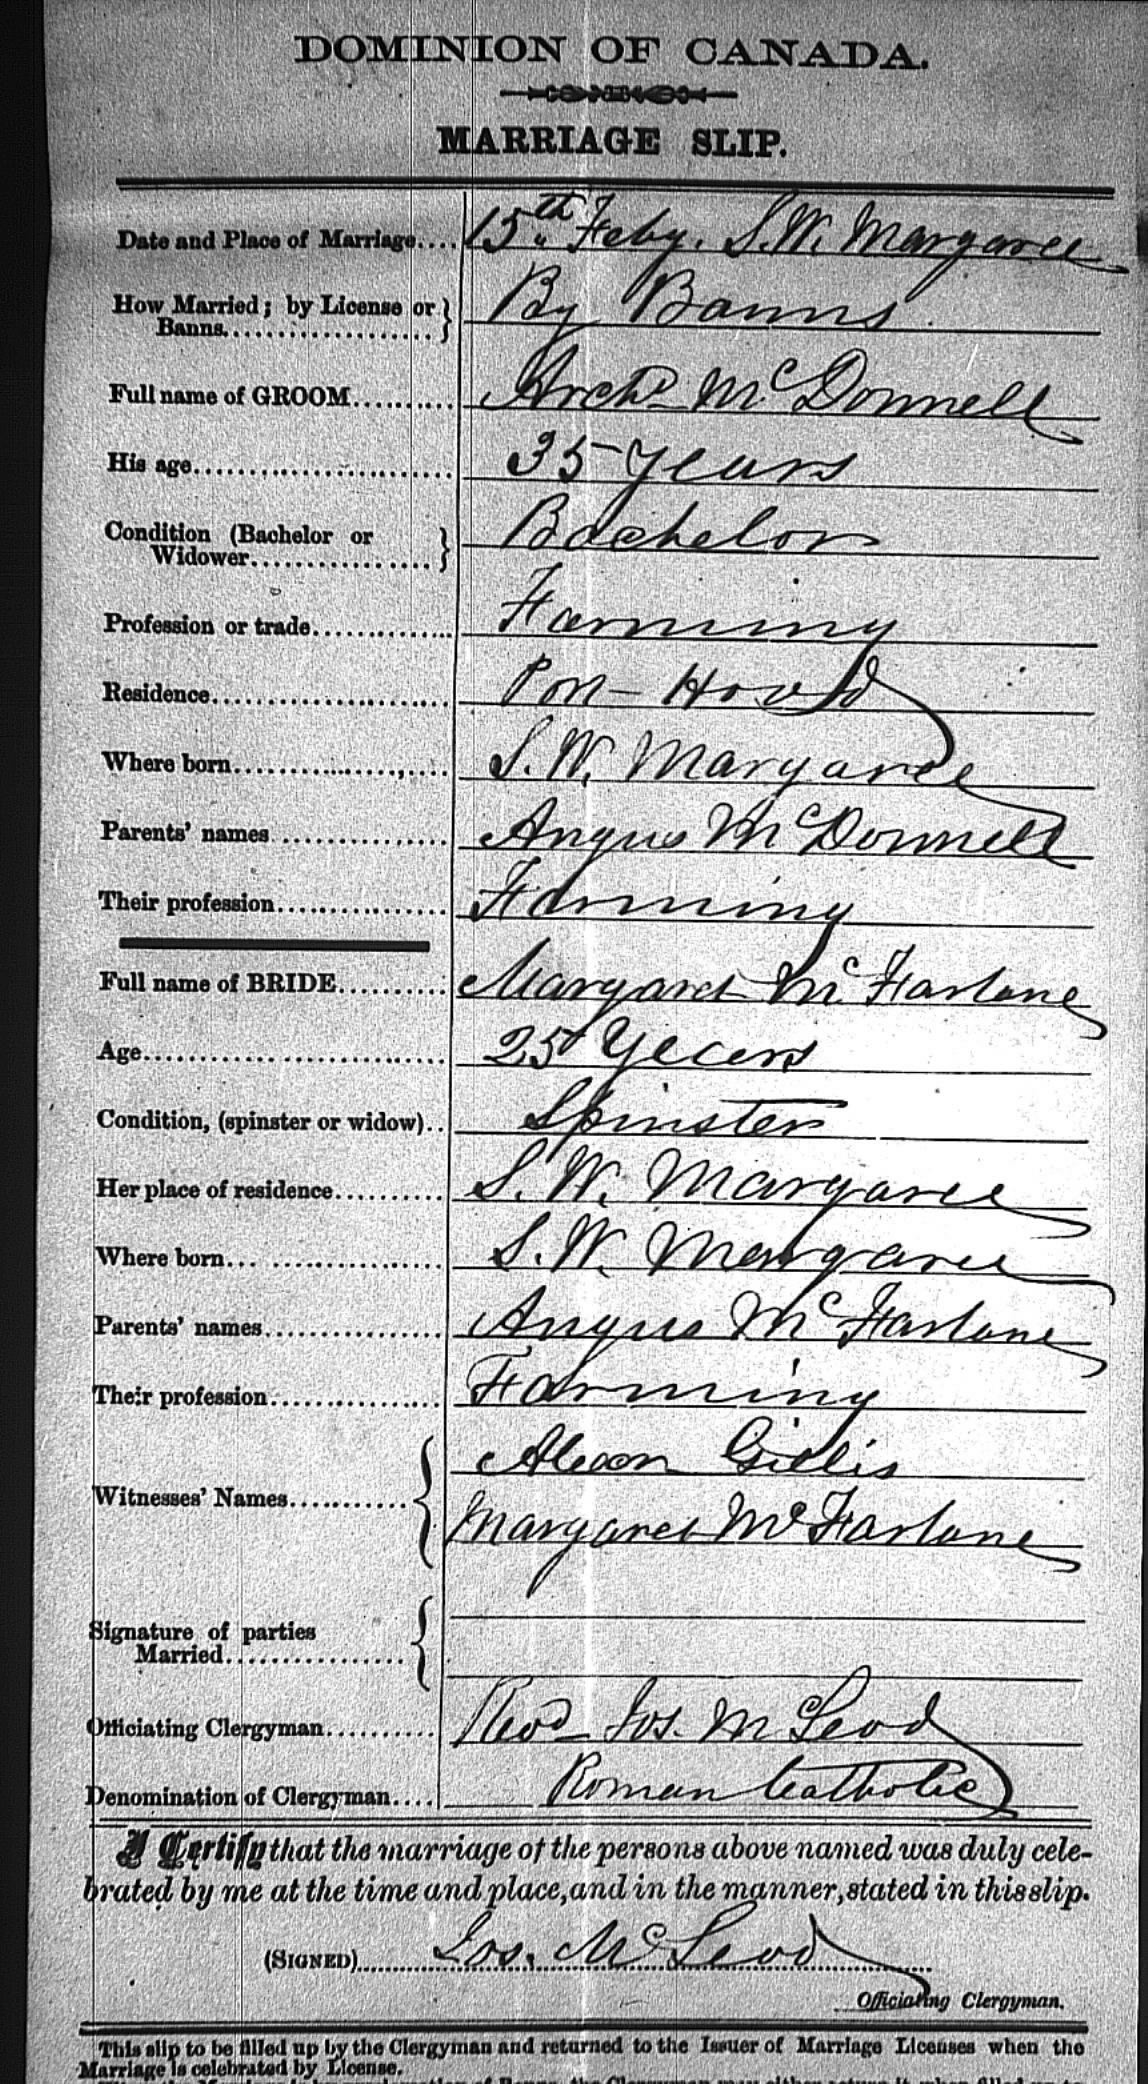 DOMINION OF CANADA.
MARRIAGE SLIP.
Date and Place of Marriage.... 15th Feby. S.W. Margaree
How Married; by License or Banns.................. By Banns
Full name of GROOM.......... Archd McDonnell
His age......................... 35 years
Condition (Bachelor or Widower................ Bachelor
Profession or trade............. Farming
Residence....................... Hood
Where born..................... S.W. Margaree
Parents' names................. Angus McDonnell
Their profession................ Farming
Full name of BRIDE.......... Margaret McFarlane
Age............................. 25 Years
Condition, (spinster or widow).. Spinster
Her place of residence.......... S.W. Margaree
Where born... ................. S.W. Margaree
Parents' names................. Angus McFarlane
Their profession................ Farming
Witnesses' Names........... Gillis
Margaret McFarlane
Signature of parties
Married................
Officiating Clergyman.......... Revd Jos. McLeod
Denomination of Clergyman.... Roman Catholic
I Certify that the marriage of the persons above named was duly cele-
brated by me at the time and place, and in the manner, stated in this slip.
(SIGNED) Jos. McLeod
Officiating Clergyman.
This slip to be filled up by the Clergyman and returned to the Issuer of Marriage Licenses when the
Marriage is celebrated by License.